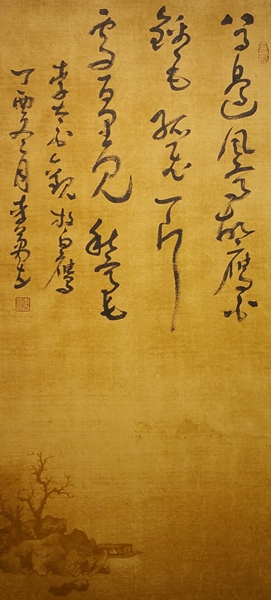 八月邊風高胡鷹白
錦毛孤飛一片
雪百里見秋毫
李太白觀放白鷹
丁酉